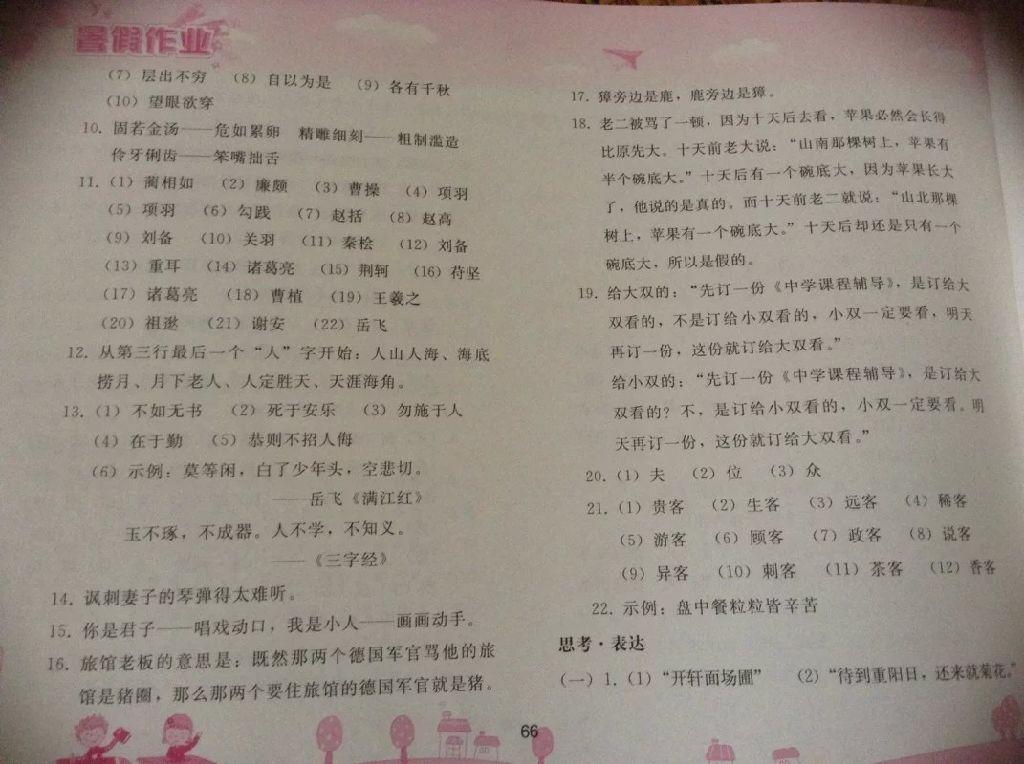 暑假作业
（7）层出不穷 （8）自以为是 （9）各有千秋
（10）望眼欲穿
10. 固若金汤——危如累卵 精雕细刻——粗制滥造
伶牙俐齿——笨嘴拙舌
11.（1）蔺相如 （2）廉颇 （3）曹操 （4）项羽
（5）项羽 （6）勾践 （7）赵括 （8）赵高
（9）刘备 （10）关羽 （11）秦桧 （12）刘备
（13）重耳 （14）诸葛亮 （15）荆轲 （16）苻坚
（17）诸葛亮 （18）曹植 （19）王羲之
（20）祖逖 （21）谢安 （22）岳飞
12. 从第三行最后一个“人”字开始：人山人海、海底
捞月、月下老人、人定胜天、天涯海角。
13.（1）不如无书 （2）死于安乐 （3）勿施于人
（4）在于勤 （5）恭则不招人侮
（6）示例：莫等闲，白了少年头，空悲切。
——岳飞《满江红》
玉不琢，不成器。人不学，不知义。
——《三字经》
14. 讽刺妻子的琴弹得太难听。
15. 你是君子——唱戏动口，我是小人——画画动手。
16. 旅馆老板的意思是：既然那两个德国军官骂他的旅
馆是猪圈，那么那两个要住旅馆的德国军官就是猪。
17. 獐旁边是鹿，鹿旁边是獐。
18. 老二被骂了一顿，因为十天后去看，苹果必然会长得
比原先大。十天前老大说：“山南那棵树上，苹果有
半个碗底大。”十天后有一个碗底大，因为苹果长大
了，他说的是真的。而十天前老二就说：“山北那棵
树上，苹果有一个碗底大。”十天后却还是只有一个
碗底大，所以是假的。
19. 给大双的：“先订一份《中学课程辅导》，是订给大
双看的，不是订给小双看的，小双一定要看，明天
再订一份，这份就订给大双看。”
给小双的：“先订一份《中学课程辅导》，是订给大
双看的？不，是订给小双看的，小双一定要看。明
天再订一份，这份就订给大双看。”
20.（1）夫 （2）位 （3）众
21.（1）贵客 （2）生客 （3）远客 （4）稀客
（5）游客 （6）顾客 （7）政客 （8）说客
（9）异客 （10）刺客 （11）茶客 （12）香客
22. 示例：盘中餐粒粒皆辛苦
思考·表达
（一）1.（1）“开轩面场圃” （2）“待到重阳日，还来就菊花。”
66